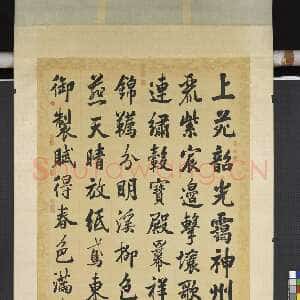 上苑韶光靄神州
麗紫宸邊擊壤歌
連繡轂寶殿羃祥
錦韉分明溪柳色
燕天晴放紙鳶東
御製賦得春色滿